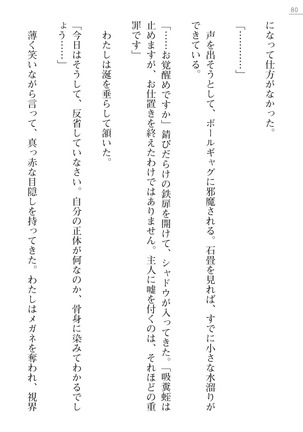 80
になって仕方がなかった。
「…………」
声を出そうとして、ボールギャグに邪魔される。石畳を見れば、すでに小さな水溜りが
できている。
「……お覚醒めですか」錆びだらけの鉄扉を開けて、シャドウが入ってきた。「吸糞蛭は
止めますが、お仕置きを終えたわけではありません。主人に嘘を付くのは、それほどの重
罪です」
わたしは涎を垂らして頷いた。
「今日はそうして、反省していなさい。自分の正体が何なのか、骨身に染みてわかるでし
ょう……」
薄く笑いながら言って、真っ赤な目隠しを持ってきた。わたしはメガネを奪われ、視界